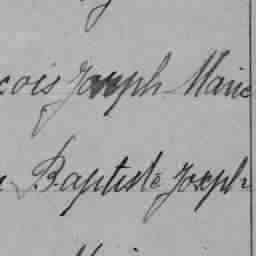 cois Joseph Marie
Baptiste Joseph